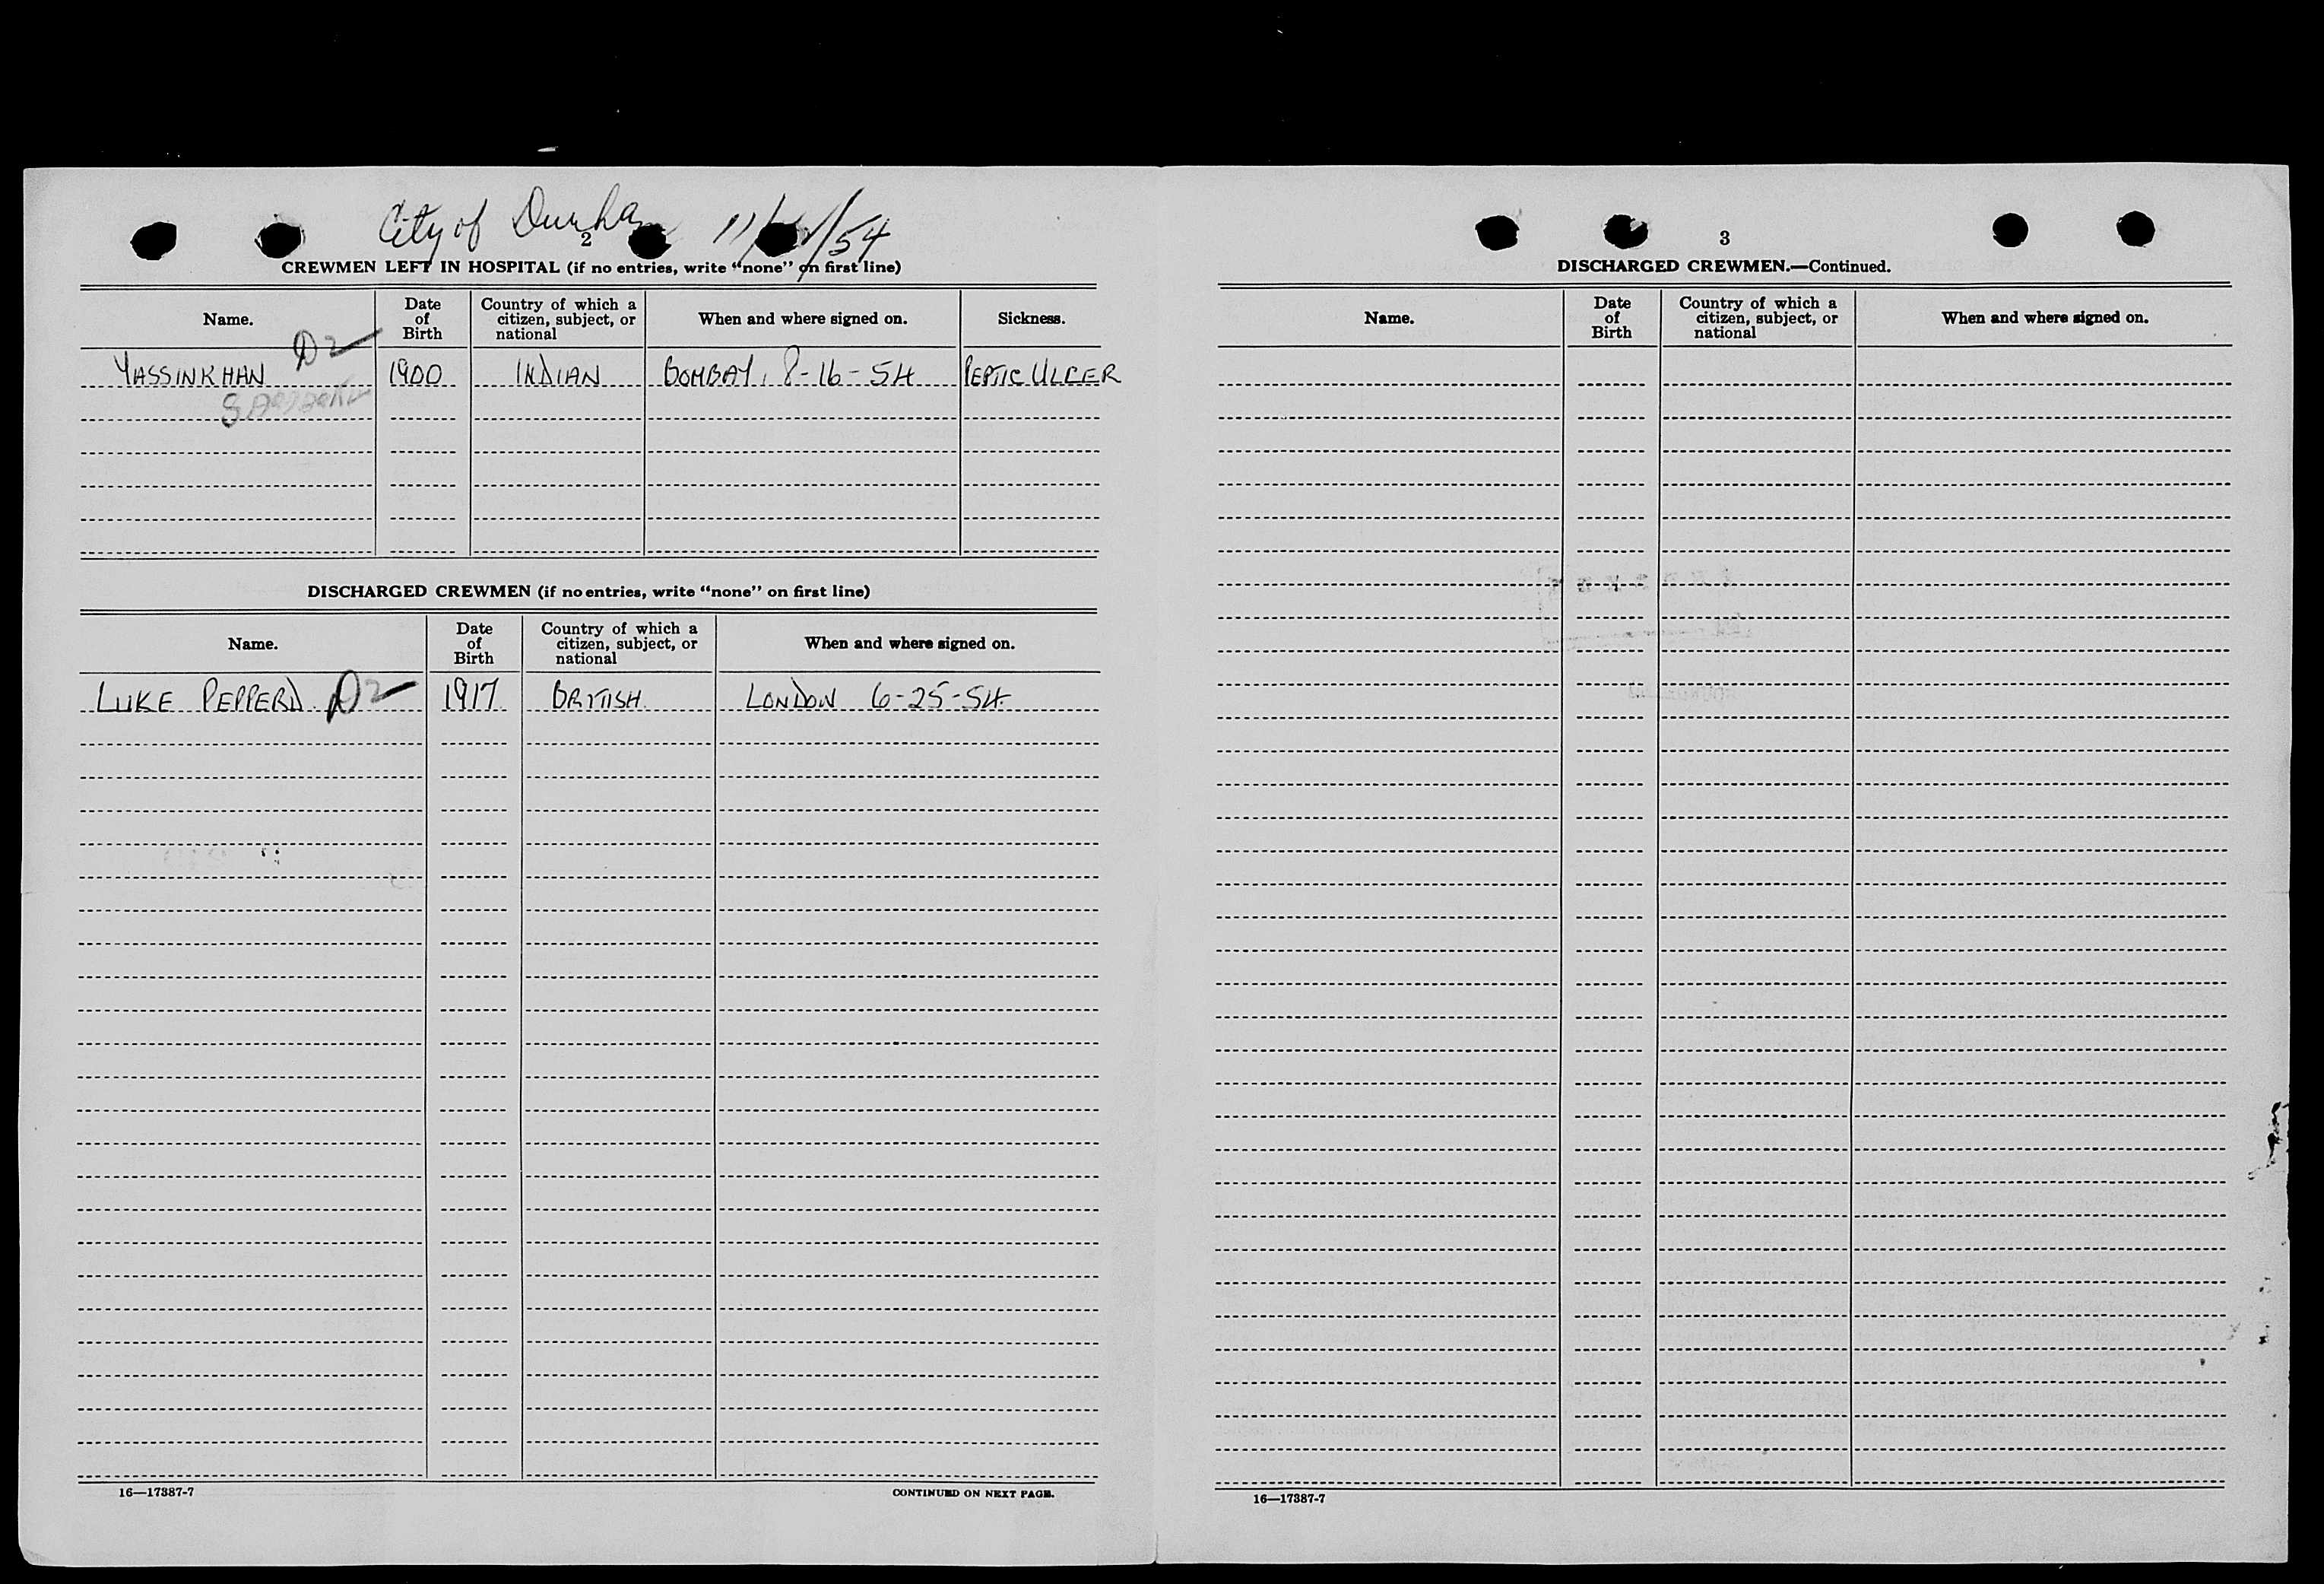 City of Durham
2
CREWMEN LEFT IN HOSPITAL (if no entries, write “none” on first line)
Name. Date of Birth Country of which a citizen, subject, or national When and where signed on. Sickness.
D2
YASSINKHAN 1900 INDIAN BOMBAY, 8-16-54 PEPTIC ULCER
DISCHARGED CREWMEN (if no entries, write “none” on first line)
Name. Date of Birth Country of which a citizen, subject, or national When and where signed on.
LUKE PEPPERD D2 1917 BRITISH LONDON 6-25-54
16—17387-7 CONTINUED ON NEXT PAGE.
3
DISCHARGED CREWMEN.—Continued.
Name. Date of Birth Country of which a citizen, subject, or national When and where signed on.
16—17387-7